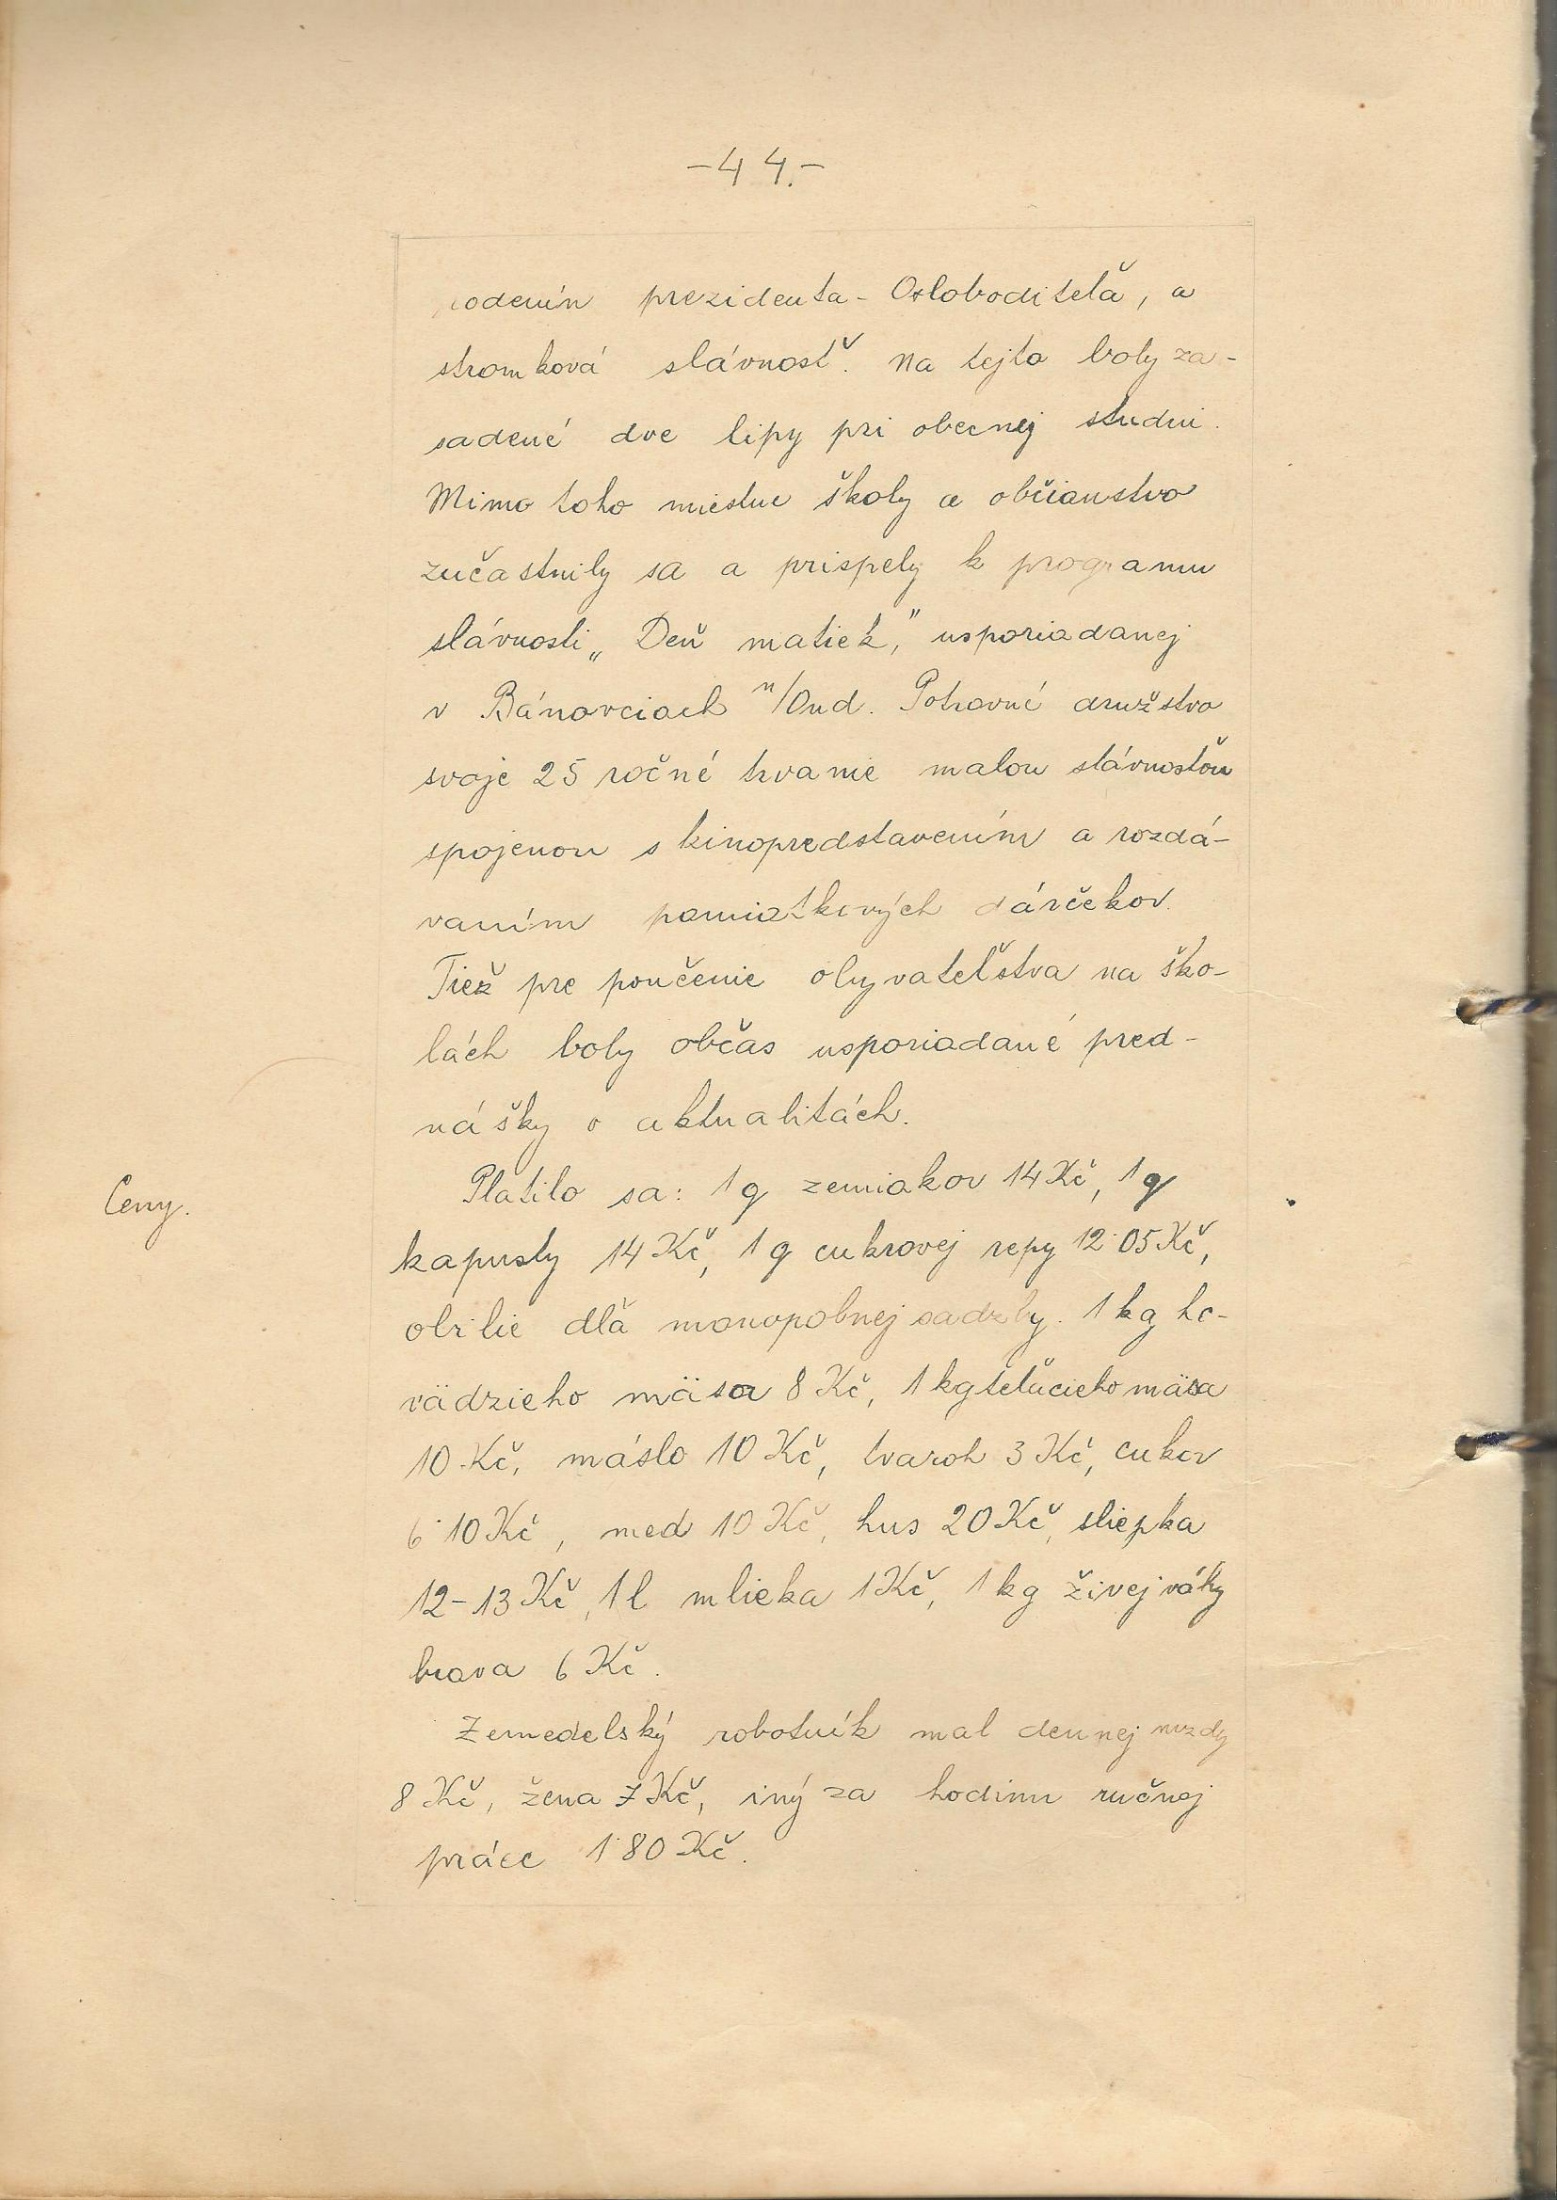 -44.-
rodenín prezidenta - Osloboditeľa, a
stromková slávnosť. Na tejto boly za-
sadené dve lipy pri obecnej studni.
Mimo toho miestne školy a občianstvo
zučastnily sa a prispely k programu
slávnosti „Deň matiek,” usporiadanej
v Bánovciach n/Ond. Potravné družstvo
svoje 25 ročné trvanie malou slávnosťou
spojenou s kinopredstavením a rozdá-
vaním pamiatkových dárčekov.
Tiež pre poučenie obyvateľstva na ško-
lách boly občas usporiadané pred-
nášky o aktualitách.
Ceny.
Platilo sa: 1 q zemiakov 14 Kč, 1 q
kapusty 14 Kč, 1 q cukrovej repy 12·05 Kč,
obilie dľa monopolnej sadzby. 1 kg ho-
vädzieho mäsa 8 Kč, 1 kg teľacieho mäsa
10 Kč, máslo 10 Kč, tvaroh 3 Kč, cukor
6·10 Kč, med 10 Kč, hus 20 Kč, sliepka
12-13 Kč, 1 l mlieka 1 Kč, 1 kg živej váhy
brava 6 Kč.
Zemedelský robotník mal dennej mzdy
8 Kč, žena 7 Kč, iný za hodinu ručnej
práce 1·80 Kč.